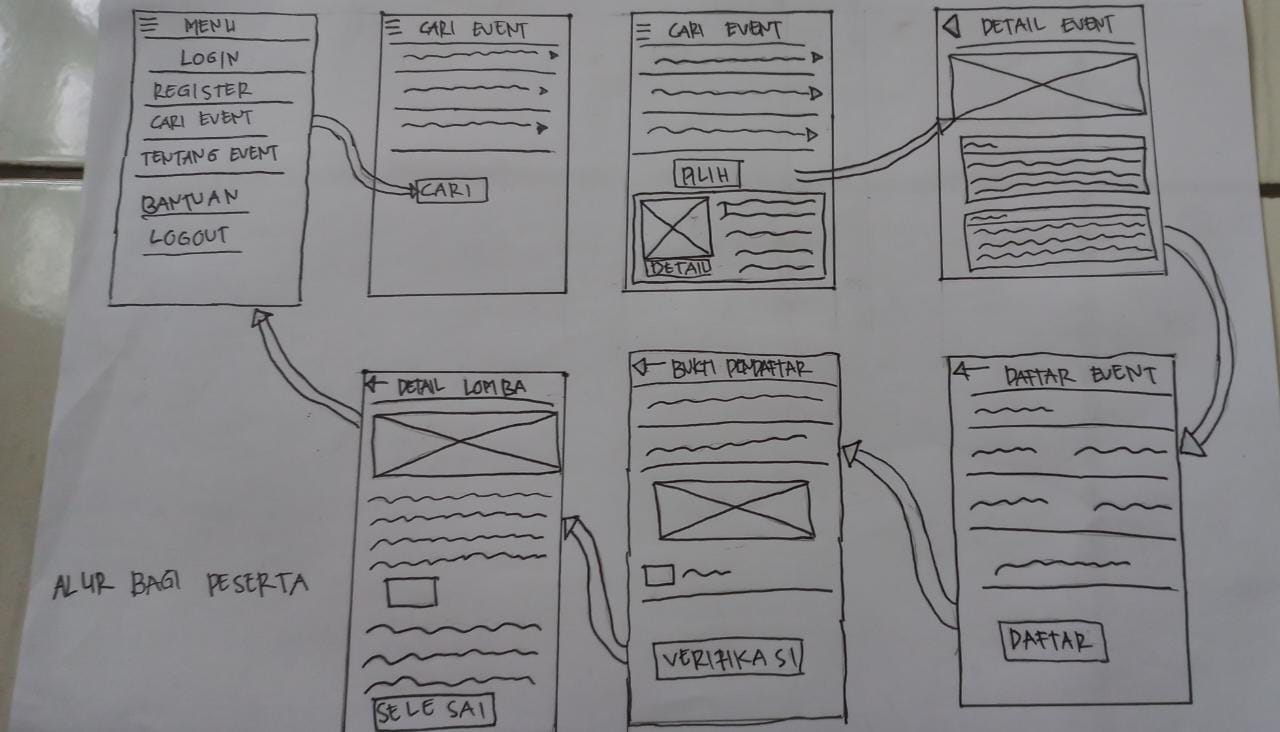 MENU
LOGIN
REGISTER
CARI EVENT
TENTANG EVENT
BANTUAN
LOGOUT
CARI EVENT
CARI
CARI EVENT
PILIH
DETAIL
DETAIL EVENT
DAFTAR EVENT
DAFTAR
BUKTI PENDAFTAR
VERIFIKASI
DETAIL LOMBA
SELESAI
ALUR BAGI PESERTA